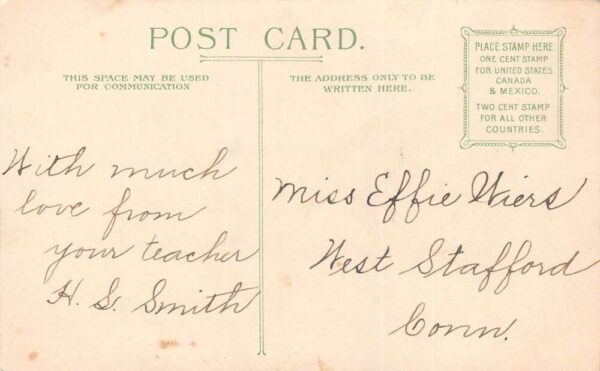 POST CARD.
THIS SPACE MAY BE USED
FOR COMMUNICATION
THE ADDRESS ONLY TO BE
WRITTEN HERE.
PLACE STAMP HERE.
ONE CENT STAMP
FOR UNITED STATES
CANADA
& MEXICO.
TWO CENT STAMP
FOR ALL OTHER
COUNTRIES.
With much
love from
your teacher
H. S. Smith
Miss Effie Wiers
West Stafford
Conn.